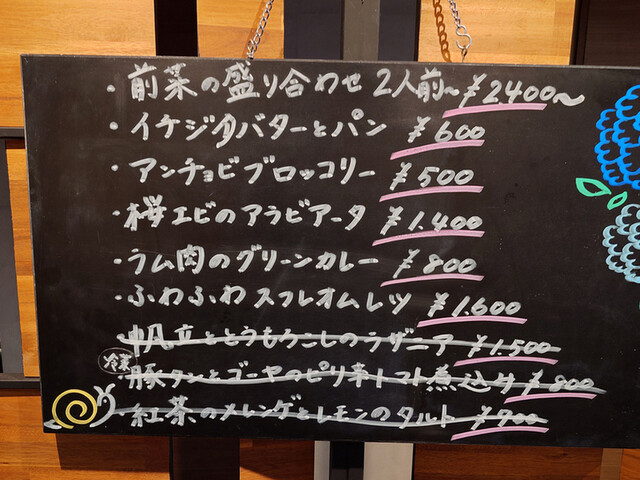 ・前菜の盛り合わせ 2人前〜¥2400〜
・イチジクバターとパン ¥600
・アンチョビブロッコリー ¥500
・桜エビのアラビアータ ¥1.400
・ラム肉のグリーンカレー ¥800
・ふわふわスフレオムレツ ¥1.600
・帆立ととうもろこしのラザニア ¥1.500
冷菜
・豚タンとゴーヤのピリ辛トマト煮込み ¥800
・紅茶のメレンゲとレモンのタルト ¥700